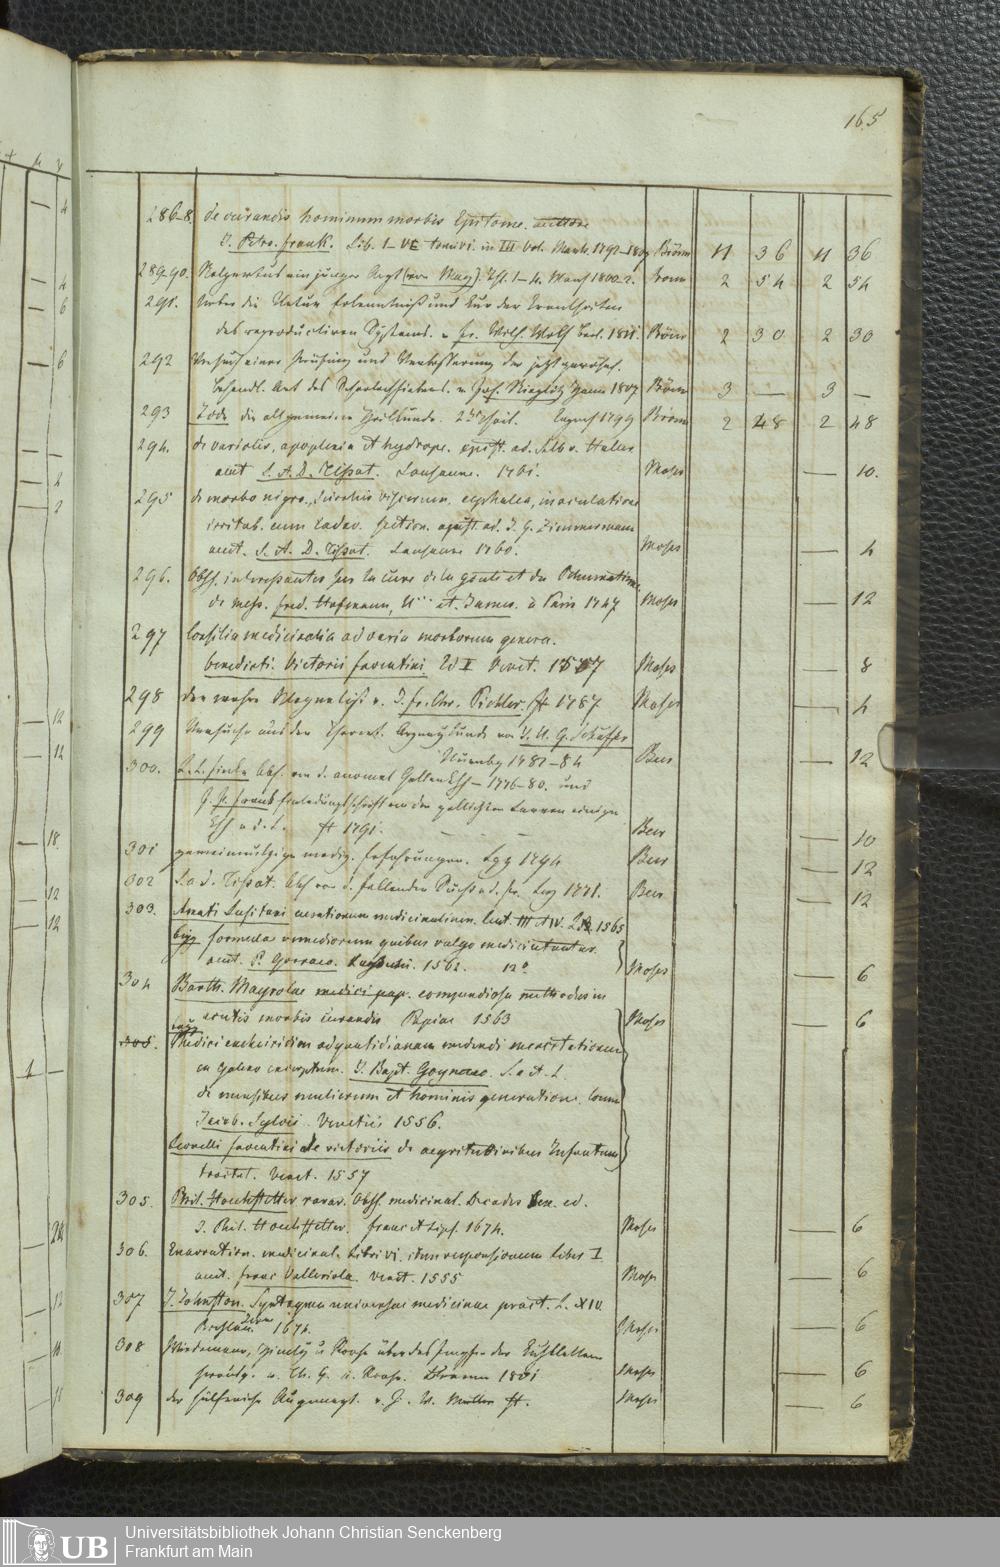 165
286-8. de curandis hominum morbis Epitome. auctore
J. Petro. Frank. Lib. I-VI tomi vi. in III Vol. Manh. 1792-1807 Brönn 11 36 11 36
289-90. ein junger Arzt (von May). 1-4. Manh 1800-2. Bronn 2 54 2 54
291. Ueber die Natur Erkenntniß und Cur der Krankheiten
des reproductiven Systems. v Fr. Wilh. Wolf Berl. 1811. Brönn 2 30 2 30
292 Versuch einer Prüfung und Verbesserung der jetzt gewöhnl.
Behandl. Art des Scharlachfiebers. v Joh. Stieglitz Hann 1807 Brönn 3 — 3 —
293 Tode die allgemeine Heilkunde. 2ter Theil. 1799 Bronn 2 48 2 48
294. de variolis, apoplexia et hydrope. epist. ad. Alb v. Haller
auct S. A. D. Tissot. Lausanne. 1761. Moses — 10.
295 de morbo nigro, scirrhis viscerum, cephalea, inoculatione
irritab. cum cadav. section. epist. ad. J. G. Zimmermann
auct. S. A. D. Tissot. Lausanne 1760. Moses — 4
296. Obss. interessantes sur la cure de la goute et du Rhumatisme.
de Mess. Fred. Hofmann, U*** et. James. à Paris 1747 Moses — 12
297 Consilia medicinalia ad varia morborum genera.
benedicti. Victorii faventini. Ed I Venet. 1557 Moses — 8
298 der wahre Magnetist v. J. Fr. Chr. Pichler. ff 1787 Moses — 4
299 Versuche aus der theoret. Arzneykunde von J. U. G. Schäffer
Nürnbg 1782-84 Beer — 12
300. L. L. Finke Abh. von d. anomal Gallen 1776-80. und
J. P. Frank Einladungsschrift von den gallichten
ff 1791. Beer — 10
301 gemeinnützige mediz. Erfahrungen. Lpz 1794 Beer — 12
302 S. a d. Tissot. Abh von d. fallenden Sucht a. d. fr. Lpz 1771. Beer — 12
303. Amati Lusitani curationum medicinalium. Cent. III et IV. 1565
formulae remediorum quibus vulgo medici utuntur.
auct. P. Gorraeo. Lugduni. 1562. 12° Moses — 6
304 Barth. Mayrolae medici pap. compendiosa methodus in
acutis morbis curandis Papiae 1563 Moses — 6
305. Medici enchiridion ad quotidianam medendi exercitationem
ex Galeno excerptum. J. Bapt. Goynaeo. S. a et. L.
de mensibus mulierum et hominis generatione. Comm
Jacob. Sylvii Venetiis 1556.
Leonelli faventini de victoriis de aegritudinibus Infantum
tractat. Venet. 1557
305. Phil. Hoechstetter rarar. Obss. medicinal. Decades sex. ed.
J. Phil. Hoechstetter. Franc et Lips. 1674. Moses — 6
306. Enarration. medicinal. Libri vi. item responsionum liber I
auct. Franc Valleriola. Venet. 1555 Moses — 6
307 J. Johnston. Syntagma universae medicinae pract. L. XIV.
Breslau. 1674. Moses — 6
308 Wiedemann, Himly u Roose über das Impfen der Kuhblattern
herausg. v. Th. G. A. Roose. Bremen 1801 Moses — 6
309 der hülfreiche Augenarzt. v J. W. Müller ff. Moses — 6
UB
Universitätsbibliothek Johann Christian Senckenberg
Frankfurt am Main